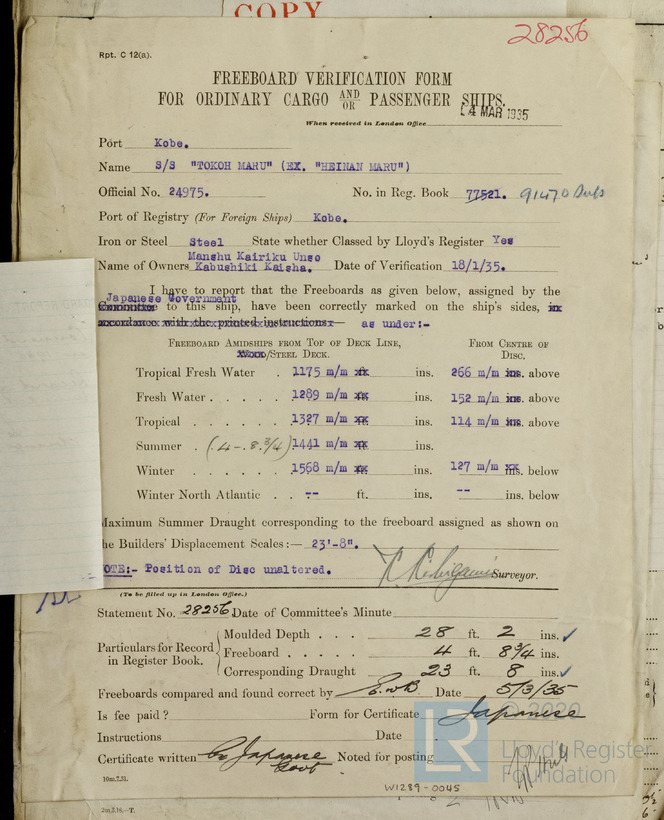 COPY
28256
Rpt. C 12(a).
FREEBOARD VERIFICATION FORM
FOR ORDINARY CARGO AND/OR PASSENGER SHIPS.
When received in London Office 4 MAR 1935
Port Kobe.
Name S/S "TOKOH MARU" (EX. "HEINAN MARU")
Official No. 24975. No. in Reg. Book 77521. 91470
Port of Registry (For Foreign Ships) Kobe.
Iron or Steel Steel State whether Classed by Lloyd's Register Yes
Manshu Kairiku Unso
Name of Owners Kabushiki Kaisha. Date of Verification 18/1/35.
I have to report that the Freeboards as given below, assigned by the
Japanese Government
Committee to this ship, have been correctly marked on the ship's sides, in
accordance with the printed instructions:— as under:-
FREEBOARD AMIDSHIPS FROM TOP OF DECK LINE, FROM CENTRE OF
WOOD/STEEL DECK. DISC.
Tropical Fresh Water . 1175 m/m ft. ins. 266 m/m ins. above
Fresh Water . . . . . 1289 m/m ins. 152 m/m ins. above
Tropical . . . . . . 1327 m/m ins. 114 m/m ins. above
Summer . (4-8 3/4) 1441 m/m ins.
Winter . . . . . . 1568 m/m ins. 127 m/m ins. below
Winter North Atlantic . . -- ft. ins. -- ins. below
Maximum Summer Draught corresponding to the freeboard assigned as shown on
the Builders' Displacement Scales:— 23'-8".
NOTE:- Position of Disc unaltered.
Surveyor.
(To be filled up in London Office.)
Statement No. 28256 Date of Committee's Minute
Particulars for Record in Register Book.
Moulded Depth . . . 28 ft. 2 ins. ✓
Freeboard . . . . . 4 ft. 8 3/4 ins.
Corresponding Draught 23 ft. 8 ins. ✓
Freeboards compared and found correct by Date 5/3/35
Is fee paid? Form for Certificate Japanese
Instructions Date
Certificate written By Japanese Govt Noted for posting
10m,7,31.
© 2020
LR
Lloyd's Register
Foundation
W1289-0045
2m,2,16.—T.